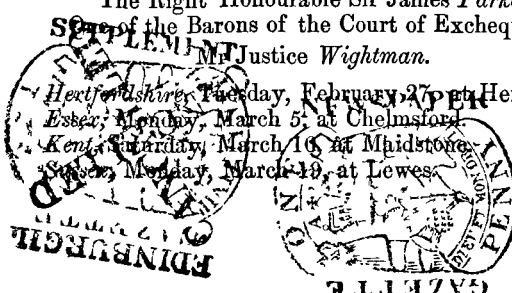 The Right Honourable Sir James Parke
One of the Barons of the Court of Excheq
Mr Justice Wightman.
Hertfordshire, Tuesday, February 27, at Her
Essex, Monday, March 5, at Chelmsford.
Kent, Saturday, March 10, at Maidstone.
Sussex, Monday, March 19, at Lewes.
SUPPLEMENT
EDINBURGH
NEWSPAPER
ONE PENN
GAZETTE